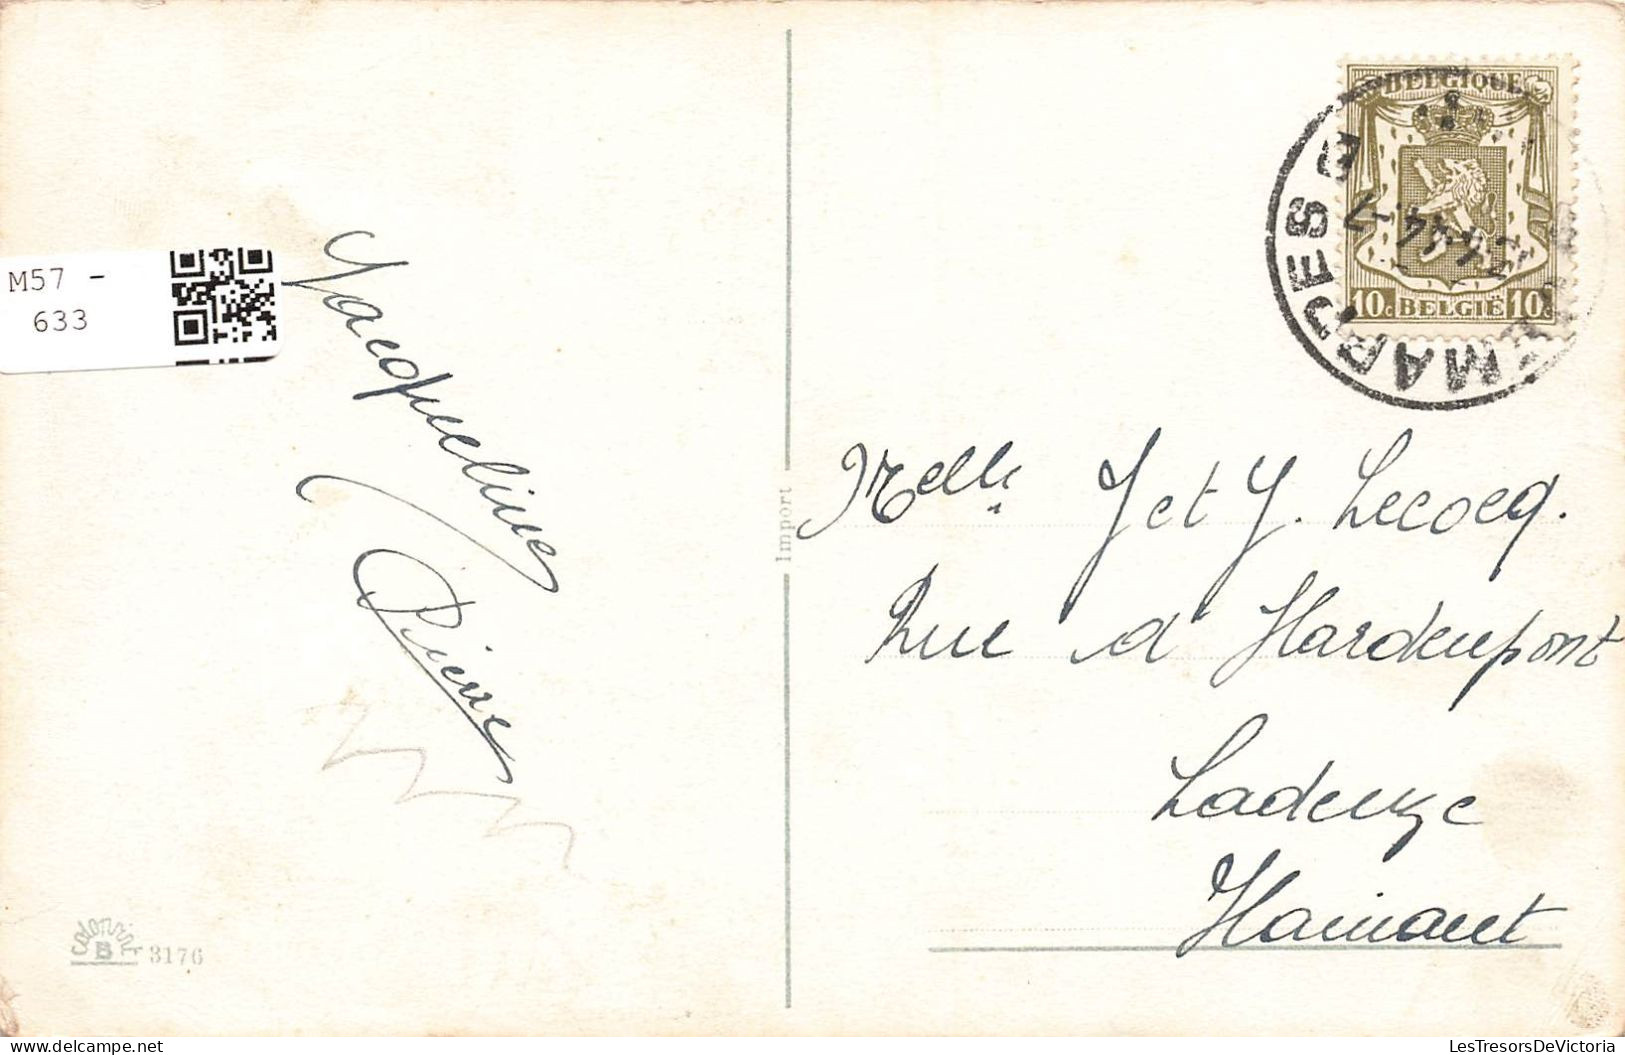 M57 -
633
Jacqueline
Pierre
colorvit
B 3176
Import
BELGIQUE
10c BELGIË 10c
-7.4.44
Melles J et Y. Lecocq.
Rue d Hardeupont
Ladeuze
Hainaut
LesTresorsDeVictoria